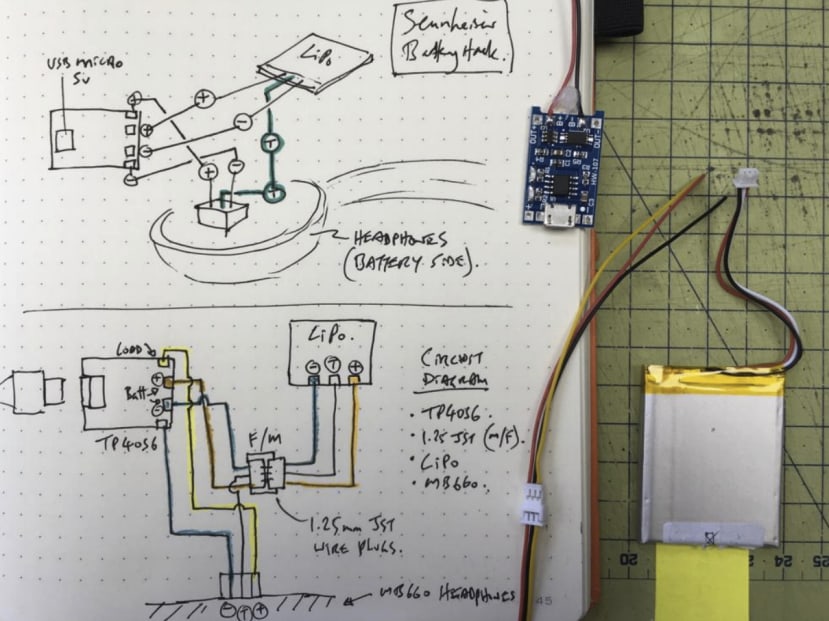 Sennheiser
Battery Hack.
USB MICRO
5V
LiPo
+
+
-
+
-
T
T
HEADPHONES
(BATTERY SIDE).
LOAD
+
Batt
-
TP4056
LiPo.
- T +
F/M
1.25mm JST
WIRE PLUGS.
- T +
MB660 HEADPHONES
CIRCUIT
DIAGRAM
• TP4056.
• 1.25 JST (M/F).
• LiPo
• MB660.
45
OUT+
B+
B-
OUT-
HW-107
20
22
23